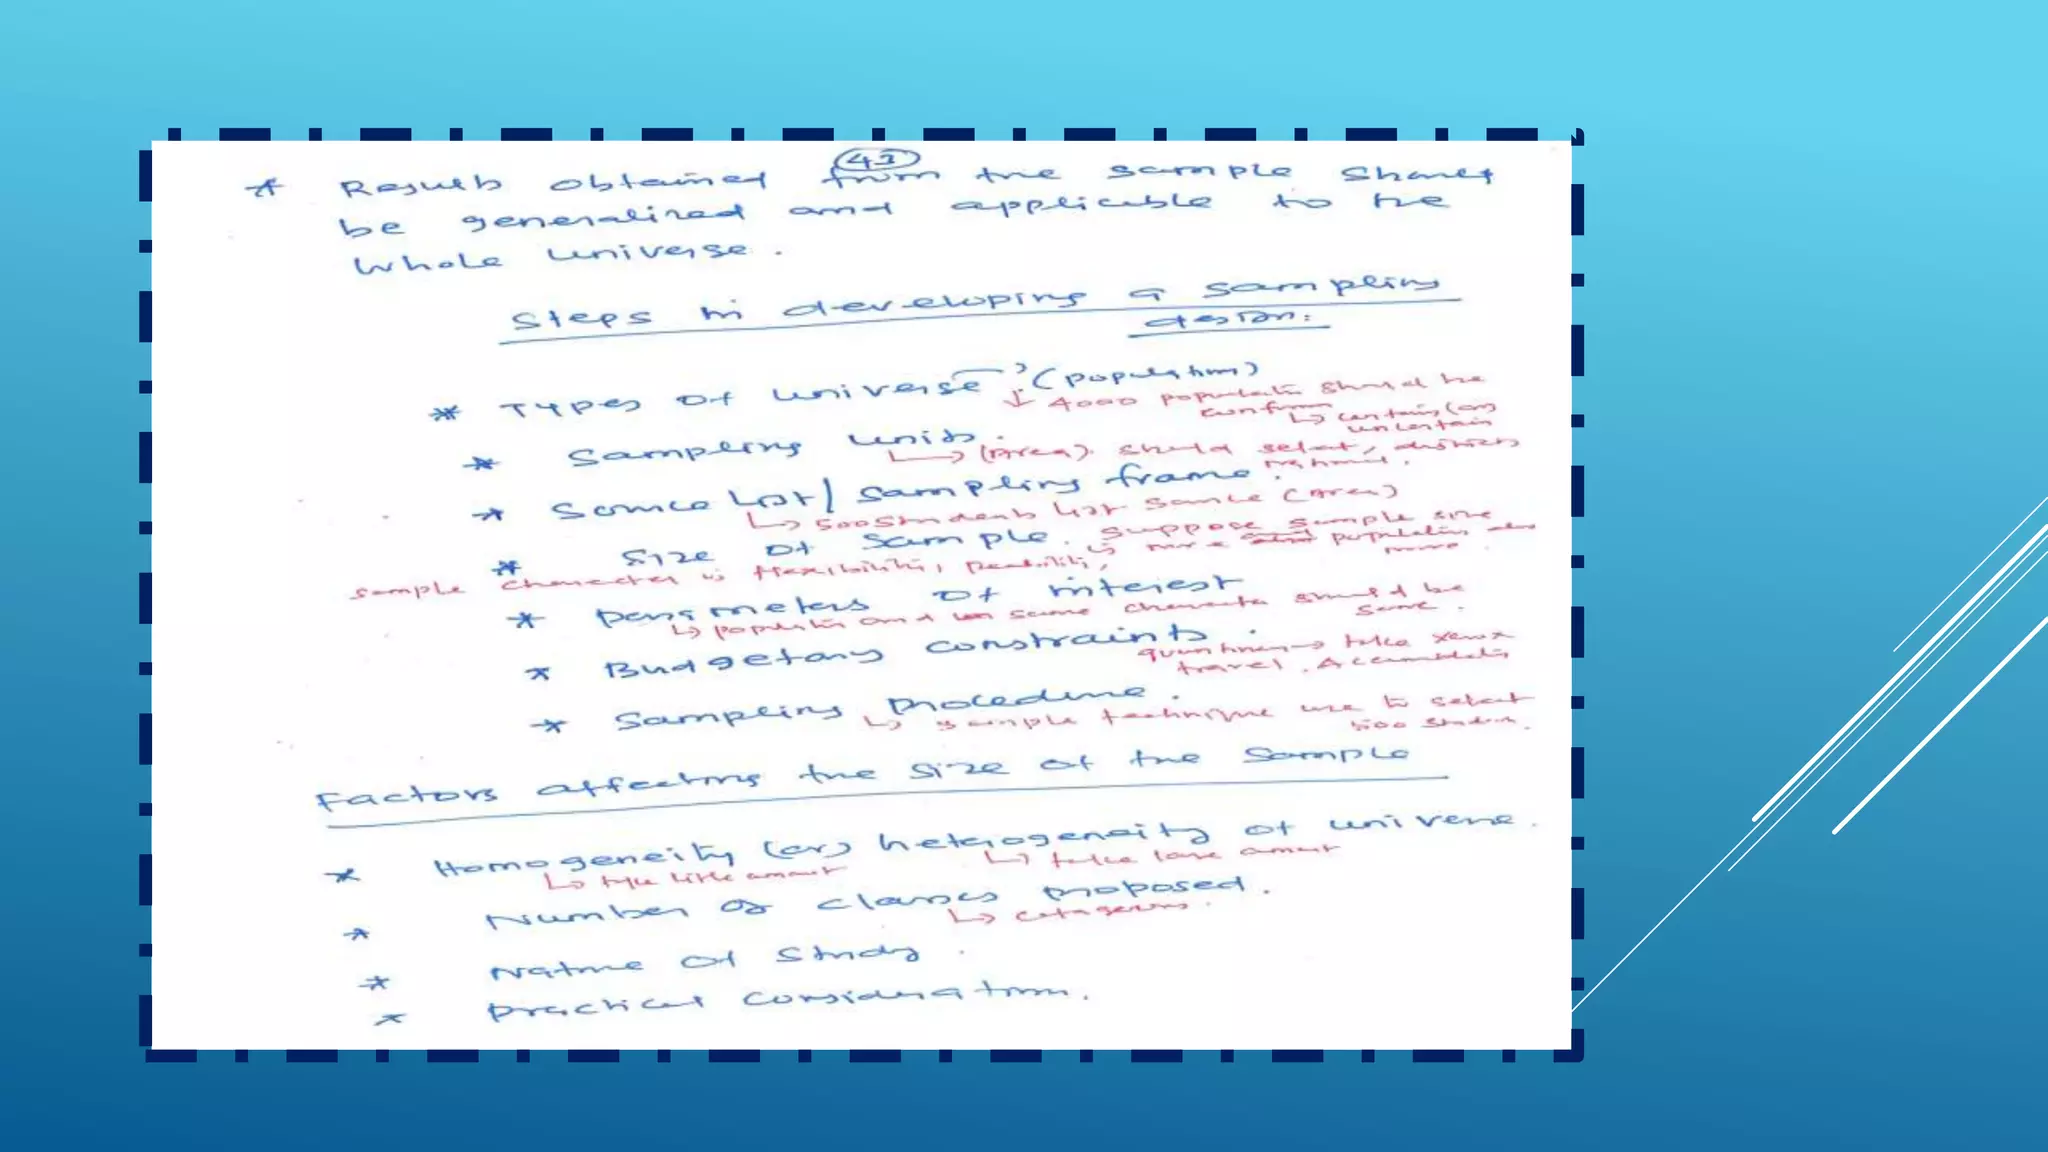 43
* Results obtained from the sample should
be generalized and applicable to the
whole universe.
Steps in developing a sampling
design:
* Types of universe: (population)
↳ 4000 population should be
confirm
↳ certain (or)
uncertain
* Sampling units.
↳ (Area) should select, districts
national.
* Source list / sampling frame.
↳ 500 students list source (Area)
* Size of sample. suppose sample size
is more population also
more
sample character is flexibility,
* Parameters of interest
↳ population and same character should be
same.
* Budgetary constraints.
→ take xerox
travel. Accommodation
* Sampling procedure.
↳ sample technique use to select
500 students.
Factors affecting the size of the sample
* Homogeneity (or) heterogeneity of universe.
↳ take little amount ↳ take large amount
* Number of classes proposed.
↳ categories.
* Nature of study.
* Practical consideration.